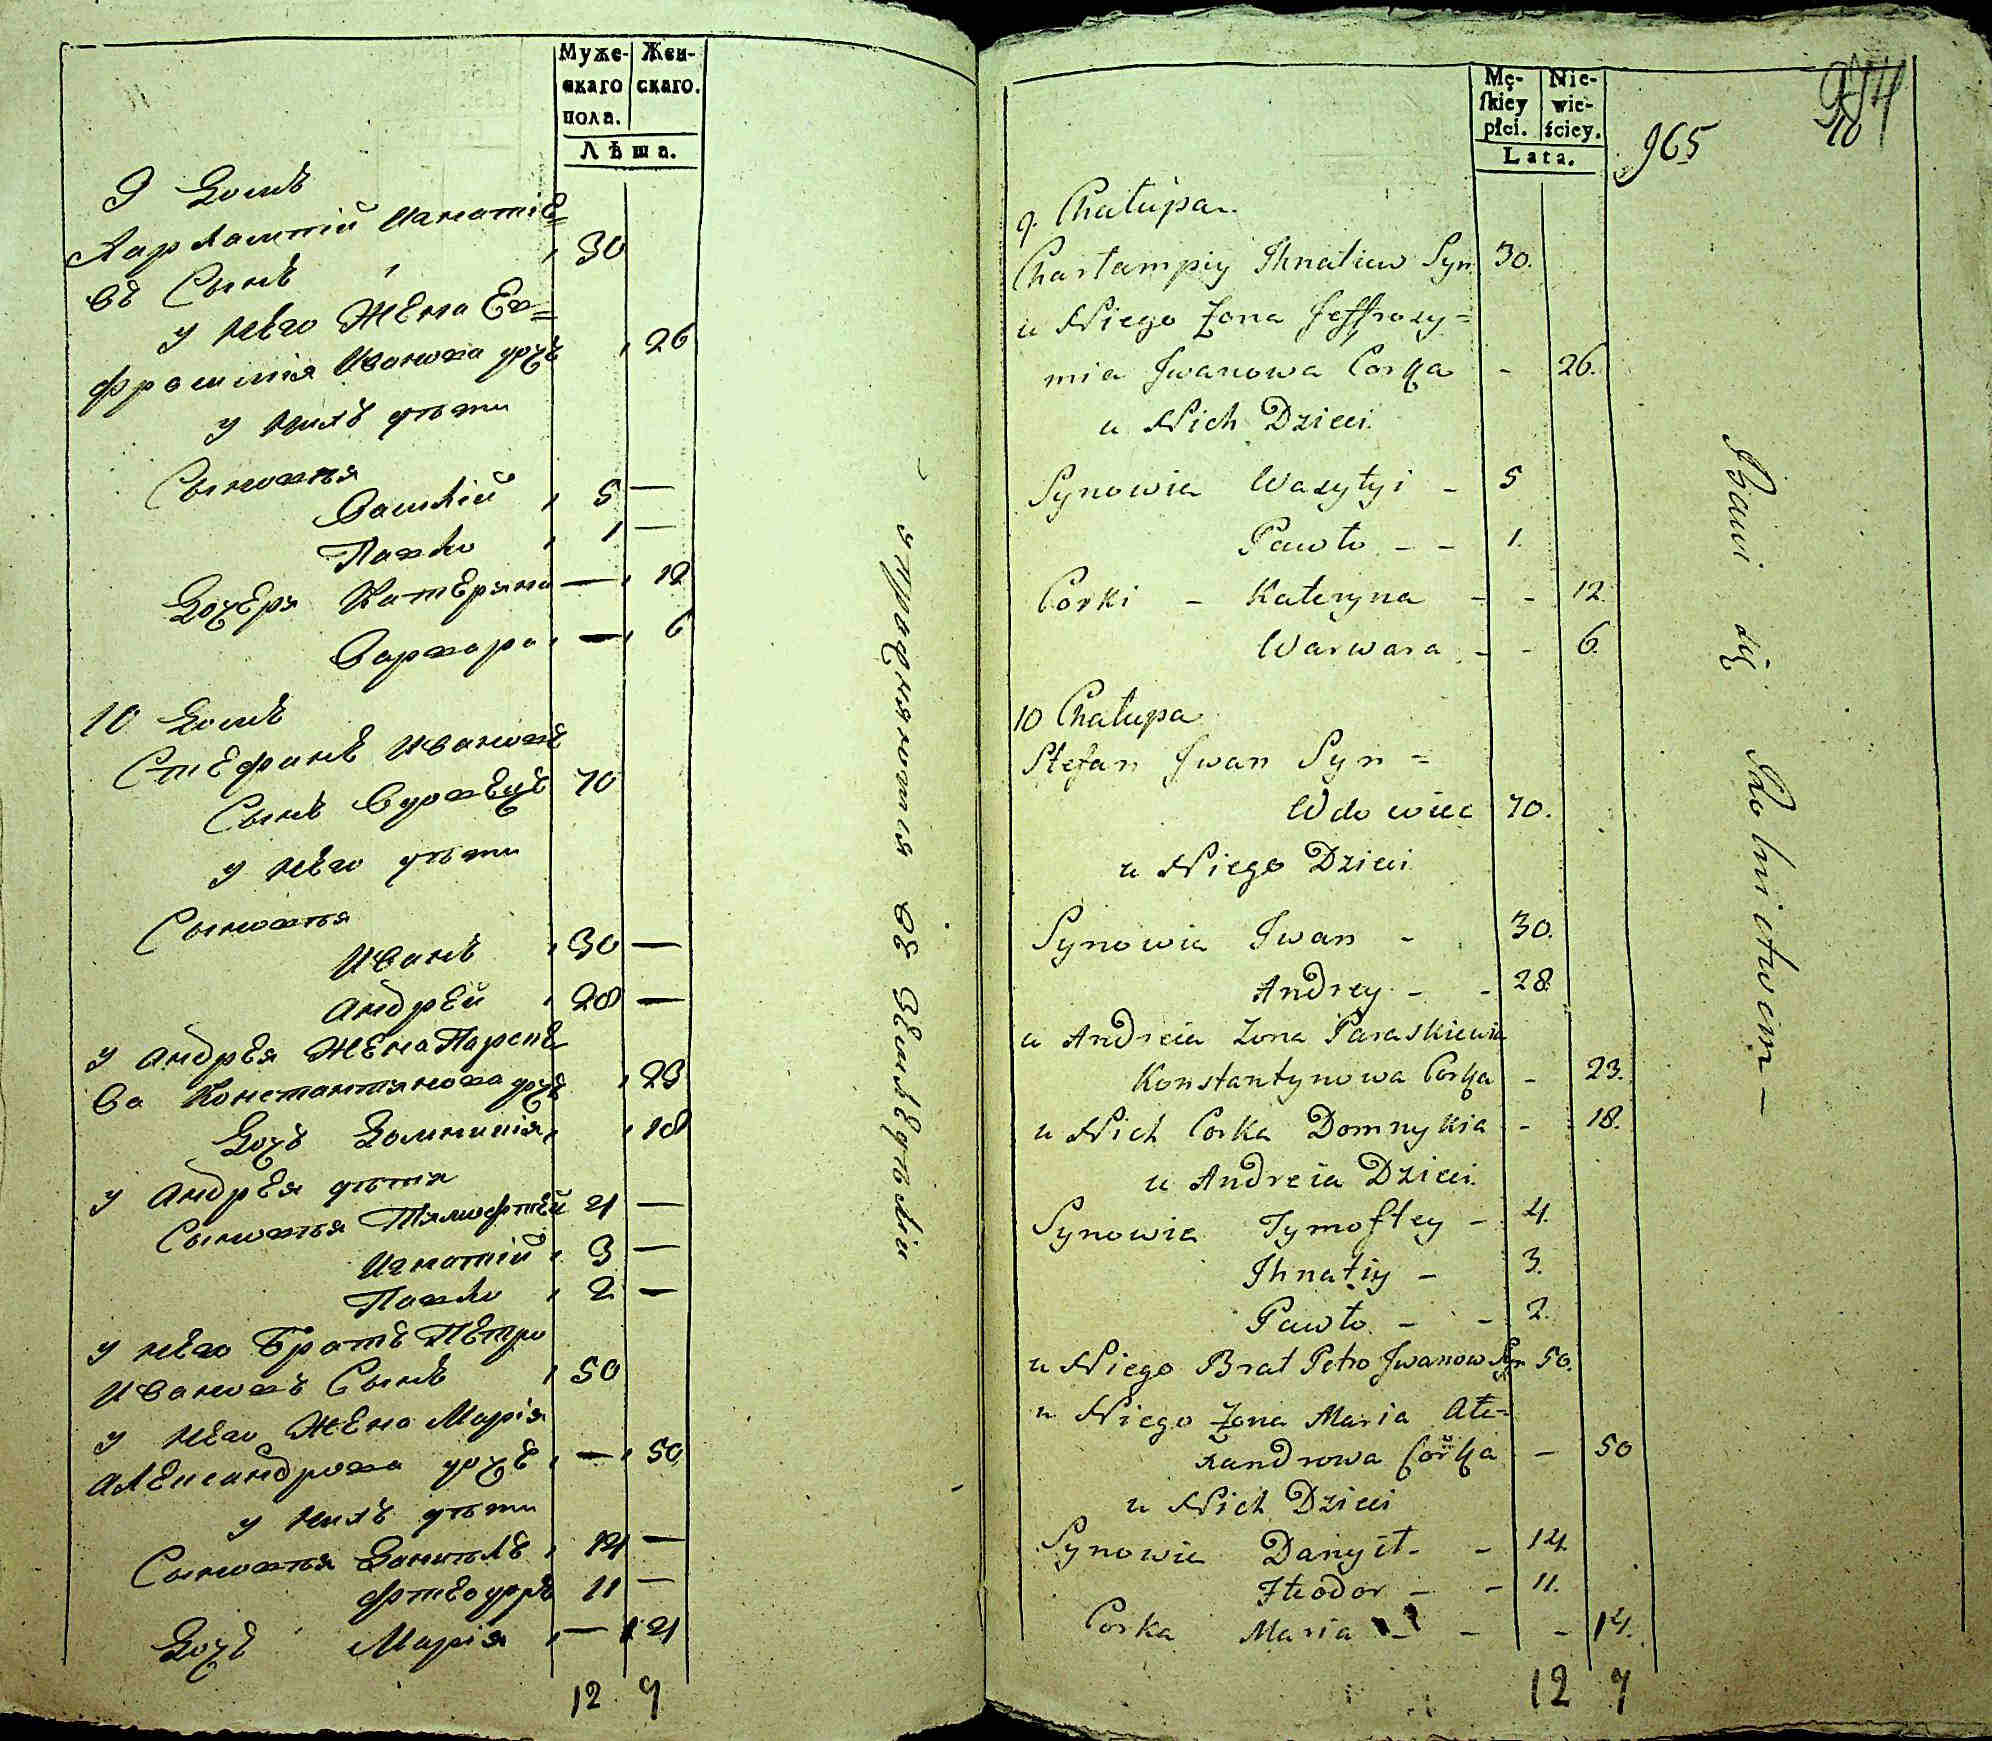 Муже-
скаго
пола.
Жен-
скаго.
Лѣта.
9 Домъ
Харлампій Игнатіе=
въ Сынъ , 30
у него Жена Ев=
фросинія Иванова дочь , 26
у нихъ дѣти
Сыновья
Василій , 5 —
Павло , 1 —
Дочери Катерина — , 12
Варвара , — , 6
10 Домъ
Стефанъ Ивановъ
Сынъ Вдовецъ 70
у него дѣти
Сыновья
Иванъ , 30 —
Андрей , 28 —
у Андрея Жена Парске
ва Константинова дочь , 23
Дочь Домникія , , 18
у Андрея дѣти
Сыновья Тимофтей 4 —
Игнатій , 3 —
Павло , 2 —
у него Братъ Петро
Ивановъ Сынъ , 50
у него Жена Марія
Александрова дочь , — , 50
у нихъ дѣти
Сыновья Данилъ , 14 —
Фтеодоръ 11 —
Дочь Марія , — 14
12 9
упражняются въ земледѣліи
Mę-
skiey
płci.
Nie-
wie-
ściey.
Lata.
965
974
10
9. Chałupa
Charłampiy Ihnatiew Syn 30.
u Niego Żona Jeffrozy=
mia Jwanowa Corka - 26.
u Nich Dzieci.
Synowie Wasyłyi - 5
Pawło - - 1.
Corki - Kateryna - - 12.
Warwara - - 6.
10 Chałupa
Stefan Jwan Syn =
Wdowiec 70.
u Niego Dzieci
Synowie Jwan - 30.
Andrey - - 28.
u Andreia Zona Paraskiewia
Konstantynowa Corka - 23.
u Nich Corka Domnykia - 18.
u Andreia Dzieci.
Synowie Tymoftey - 4.
Ihnatiy - 3.
Pawło - - 2.
u Niego Brat Petro Jwanow Syn 50.
u Niego Żona Maria Ałe=
xandrowa Córka - 50
u Nich Dzieci
Synowie Danyił - - 14
Fteodor - - 11.
Corka Maria - - - 14.
12 9
Bawi się Rolnictwem —